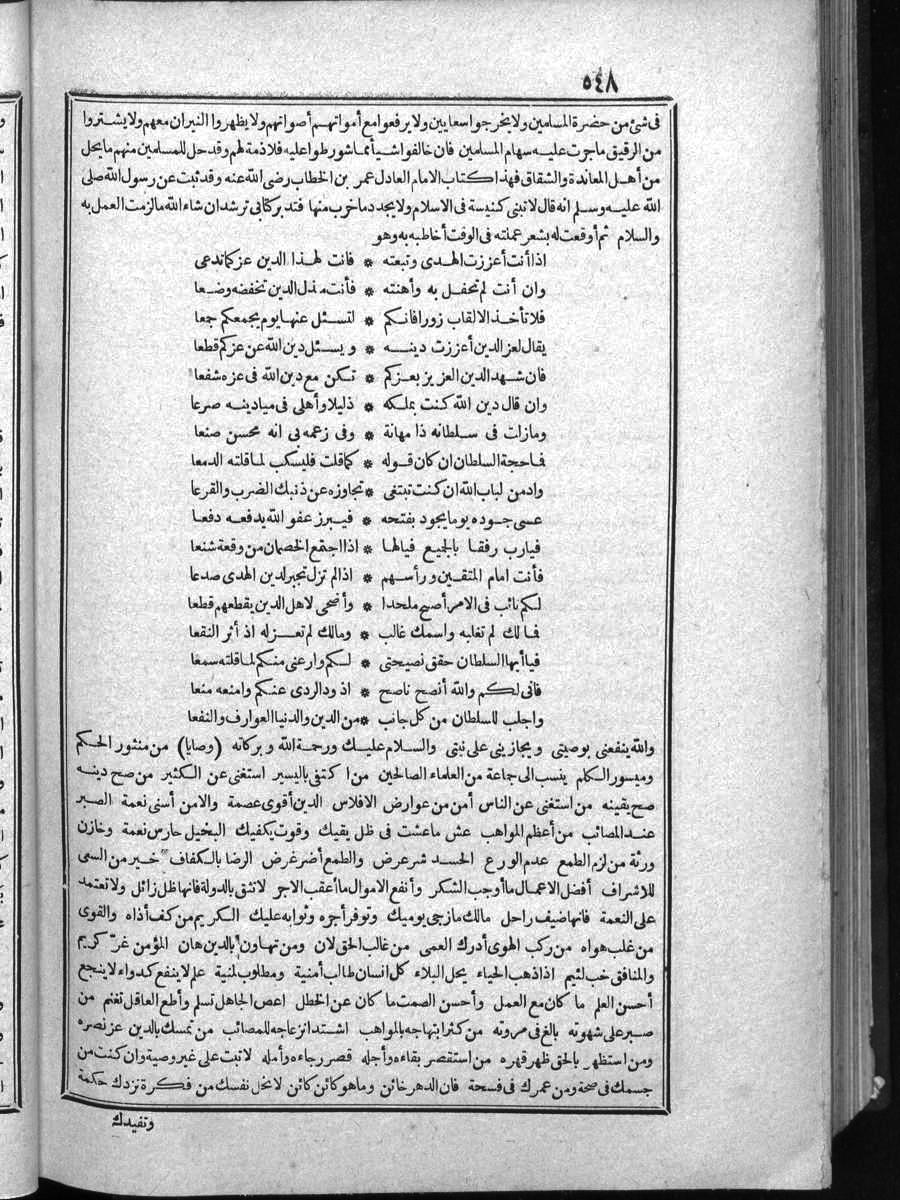 ٥٤٨
فى شئ من حضرة المسلمين ولا يخرجوا سعايين ولا يرفعوا مع أمواتهم أصواتهم ولا يظهروا النيران معهم ولا يشتروا
من الرقيق ما جرت عليه سهام المسلمين فان خالفوا شيأ مما شورطوا عليه فلا ذمة لهم وقد حل للمسلمين منهم ما يحل
من أهل المعاندة والشقاق فهذا كتاب الامام العادل عمر بن الخطاب رضى الله عنه وقد ثبت عن رسول الله صلى
الله عليه وسلم انه قال لا تبنى كنيسة فى الاسلام ولا يجدد ما خرب منها فتدبر كتابى ترشد ان شاء الله ما لزمت العمل به
والسلام ثم أوقعت له بشعر عملته فى الوقت أخاطبه به وهو
اذا أنت أعززت الهدى وتبعته * فانت لهذا الدين عز كما تدعى
وان أنت لم تحفل به وأهنته * فأنت مذل الدين تخفضه وضعا
فلا تأخذ الالقاب زورا فانكم * لتسئل عنها يوم يجمعكم جمعا
يقال لعز الدين أعززت دينه * ويسئل دين الله عن عزكم قطعا
فان شهد الدين العزيز بعزكم * تكن مع دين الله فى عزه شفعا
وان قال دين الله كنت بملكه * ذليلا وأهلى فى ميادينه صرعا
وما زلت فى سلطانه ذا مهانة * وفى زعمه بى انه محسن صنعا
فما حجة السلطان ان كان قوله * كما قلت فليسكب لما قلته الدمعا
وادمن لباب الله ان كنت تبتغى * تجاوزه عن ذنبك الضرب والقرعا
عسى جوده يوما يجود بفتحه * فيبرز عفو الله يدفعه دفعا
فيارب رفقا بالجميع فيالها * اذا اجتمع الخصمان من وقعة شنعا
فأنت امام المتقين ورأسهم * اذا لم تزل تجبر لدين الهدى صدعا
لكم نائب فى الامر أصبح ملحدا * وأضحى لاهل الدين يقطعهم قطعا
فما لك لم تغلبه واسمك غالب * ومالك لم تعزله اذ أثر النقعا
فيا أيها السلطان حقق نصيحتى * لكم وارعنى منكم لما قلته سمعا
فانى لكم والله أنصح ناصح * اذود الردى عنكم وامنعه منعا
واجلب للسلطان من كل جانب * من الدين والدنيا العوارف والنفعا
والله ينفعنى بوصيتى ويجازينى على نيتى والسلام عليك ورحمة الله وبركاته (وصايا) من منثور الحكم
وميسور الكلم ينسب الى جماعة من العلماء الصالحين من اكتفى باليسير استغنى عن الكثير من صح دينه
صح يقينه من استغنى عن الناس أمن من عوارض الافلاس الدين أقوى عصمة والامن أسنى نعمة الصبر
عند المصائب من أعظم المواهب عش ما عشت فى ظل يقيك وقوت يكفيك البخيل حارس نعمة وخازن
ورثة من لزم الطمع عدم الورع الحسد شر عرض والطمع أضر غرض الرضا بالكفاف خير من السى
للاشراف أفضل الاعمال ما أوجب الشكر وأنفع الاموال ما أعقب الاجر لا تثق بالدولة فانها ظل زائل ولا تعتمد
على النعمة فانها ضيف راحل مالك ما زجى يوميك وتوفر أجره وثوابه عليك الكريم من كف أذاه والقوى
من غلب هواه من ركب الهوى أدرك العمى من غالب الحق لان ومن تهاون بالدين هان المؤمن غر كريم
والمنافق خب لئيم اذا ذهب الحياء يحل البلاء كل انسان طالب أمنية ومطلوب لمنية علم لا ينفع كدواء لا ينجع
أحسن العلم ما كان مع العمل وأحسن الصمت ما كان عن الخطل اعص الجاهل تسلم وأطع العاقل تغنم من
صبر على شهوته بالغ فى مروته من كثر ابتهاجه بالمواهب اشتد انزعاجه للمصائب من تمسك بالدين عز نصره
ومن استظهر بالحق ظهر قهره من استقصر بقاءه وأجله قصر رجاءه وأمله لا تبت على غير وصية وان كنت من
جسمك فى صحة ومن عمرك فى فسحة فان الدهر خائن وما هو كائن كائن لا تخل نفسك من فكرة تزدك حكمة
وتفيدك